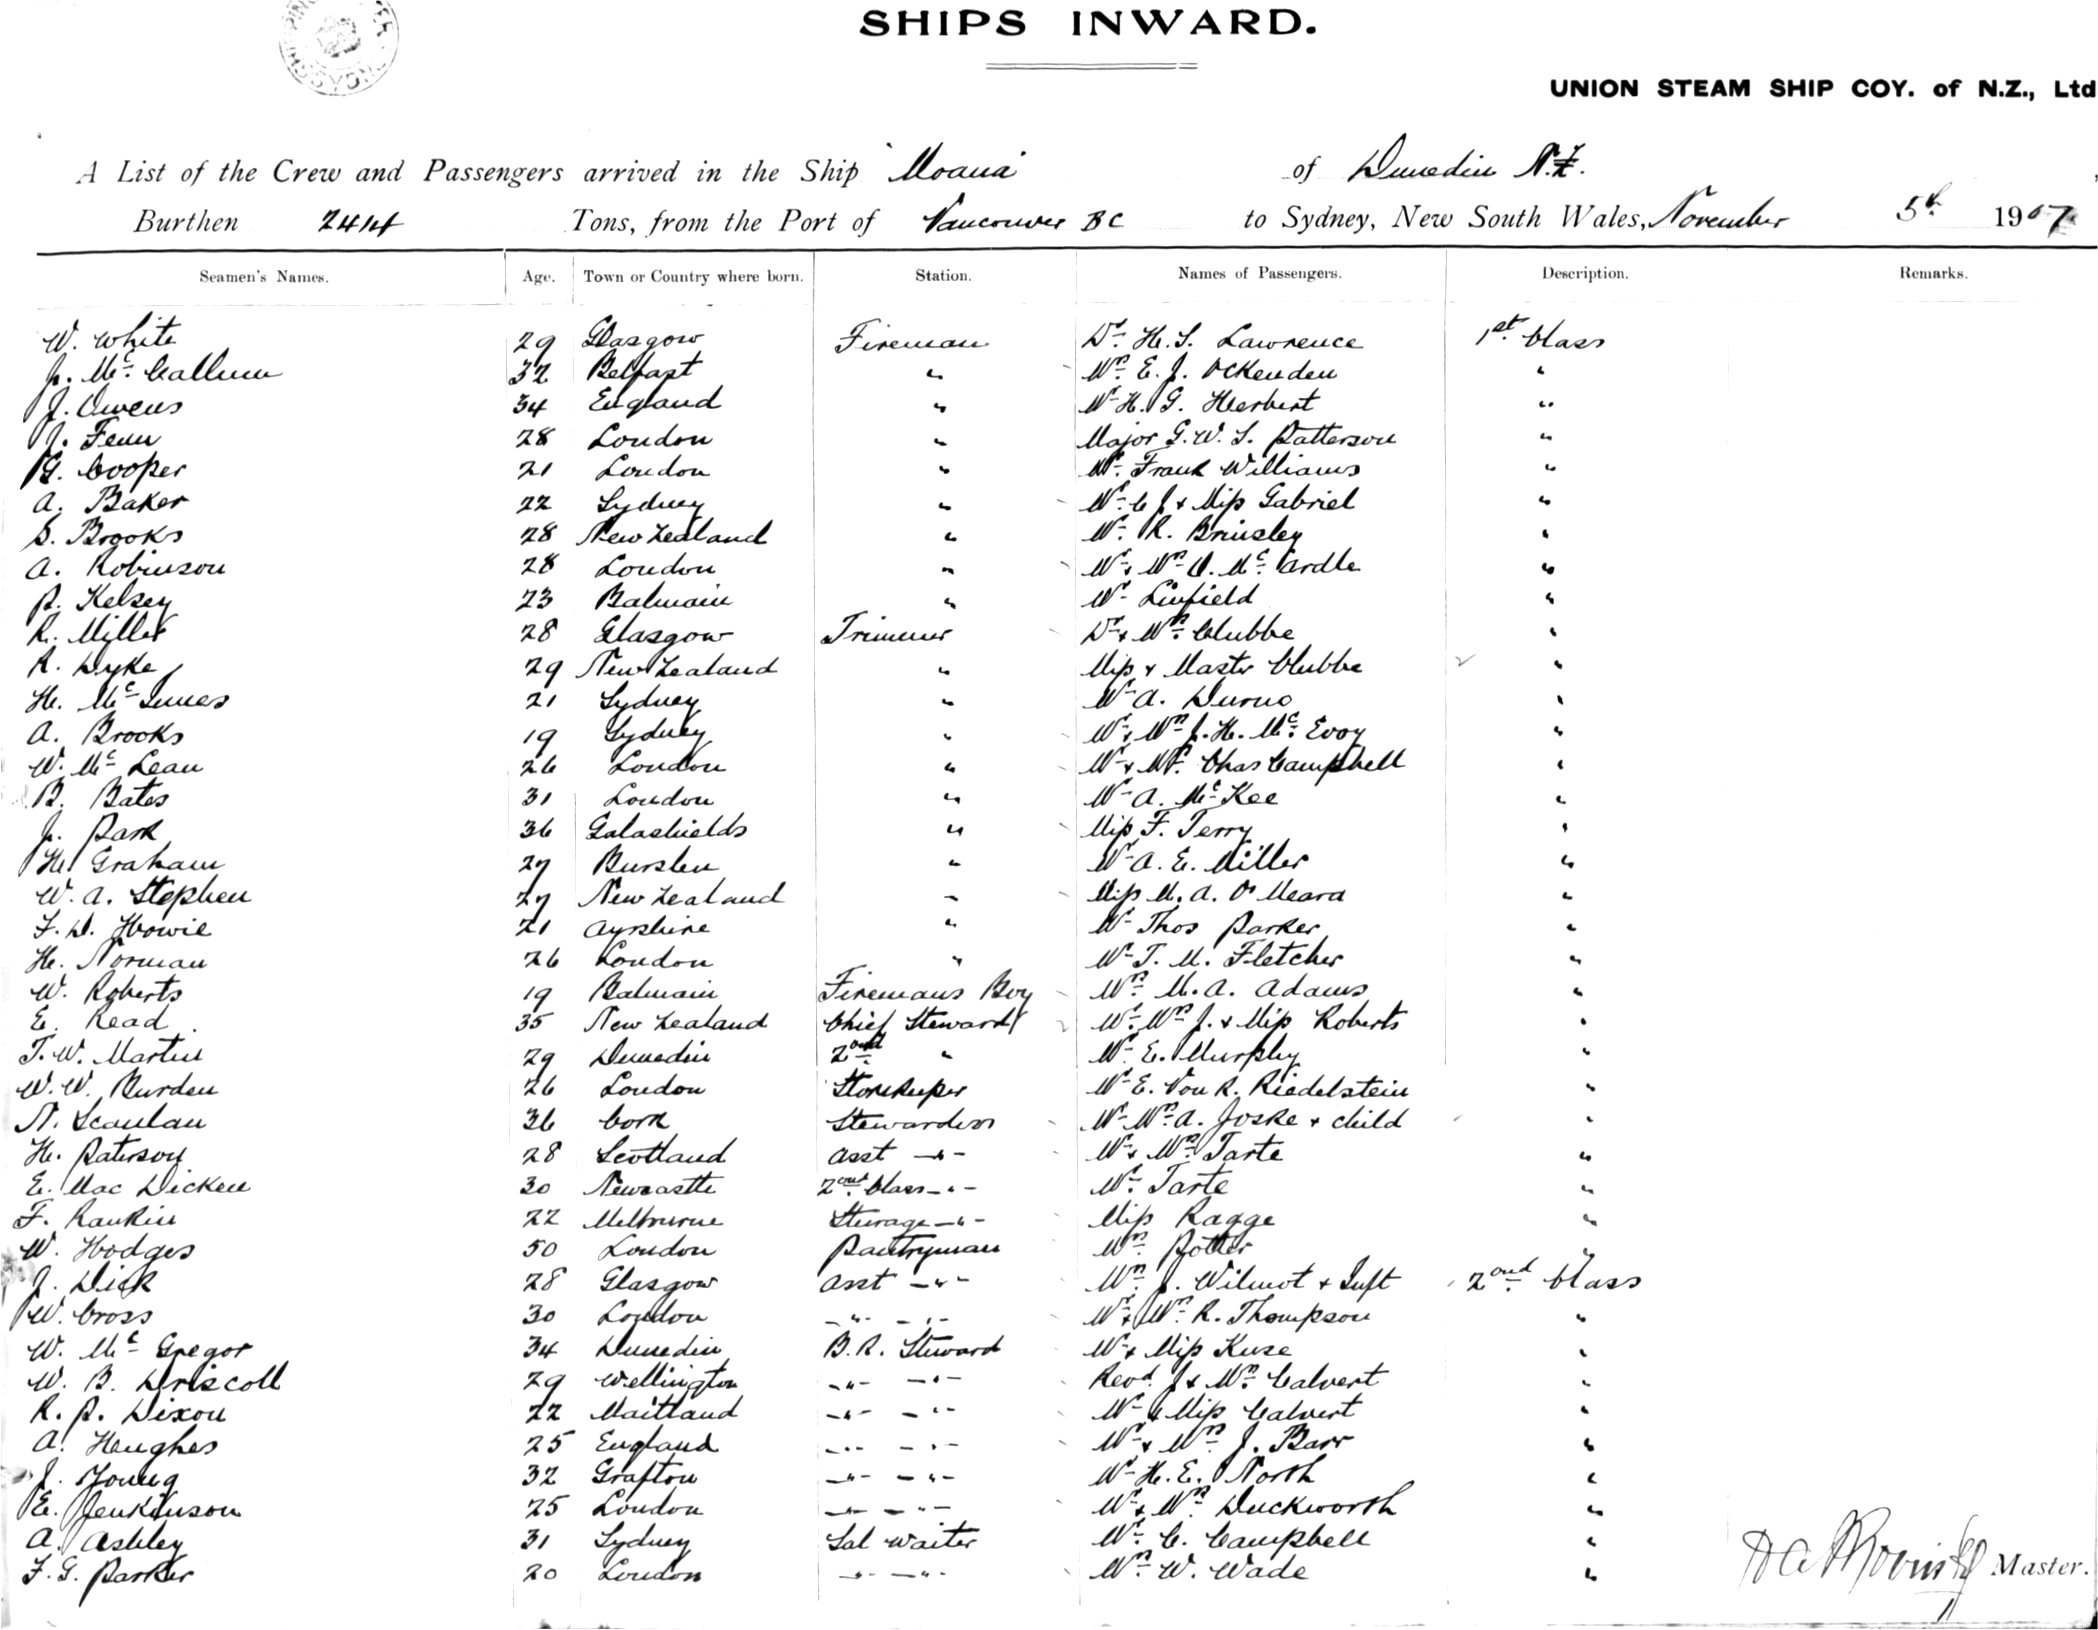 SHIPS INWARD.
UNION STEAM SHIP COY. of N.Z., Ltd
A List of the Crew and Passengers arrived in the Ship "Moana" of Dunedin N.Z.
Burthen 2414 Tons, from the Port of Vancouver BC to Sydney, New South Wales, November 5th 1907
Seamen's Names. Age. Town or Country where born. Station. Names of Passengers. Description. Remarks.
W. White 29 Glasgow Fireman Dr. H. S. Lawrence 1st Class
J. McCallum 32 Belfast " Mrs. E. J. Ockenden "
J. Owens 34 England " Mr H. G. Herbert "
J. Fenn 28 London " Major G. W. S. Patterson "
G. Cooper 21 London " Mr. Frank Williams "
A. Baker 22 Sydney " Mr. C J & Miss Gabriel "
S. Brooks 28 New Zealand " Mr. R. Brinsley "
A. Robinson 28 London " Mr & Mrs O. McCardle "
P. Kelsey 23 Balmain " Mr Linfield "
R. Miller 28 Glasgow Trimmer Dr & Mrs Clubbe "
R. Dyke 29 New Zealand " Miss & Master Clubbe "
H. McInnes 21 Sydney " Mr A. Durno "
A. Brooks 19 Sydney " Mr & Mrs J. H. McEvoy "
W. McLean 26 London " Mr & Mrs. Chas Campbell "
B. Bates 31 London " Mr A. McKee "
J. Park 36 Galashields " Miss F. Terry "
H. Graham 27 Burslen " Mr A. E. Miller "
W. A. Stephen 27 New Zealand " Miss M. A. O'Meara "
F. D. Howie 21 Ayrshire " Mr Thos Parker "
H. Norman 26 London " Mr T. M. Fletcher "
W. Roberts 19 Balmain Firemans Boy Mrs. M. A. Adams "
E. Read 35 New Zealand Chief Steward Mr. Mrs J. & Miss Roberts "
T. W. Martin 29 Dunedin 2ond " Mr E. Murphy "
W. W. Burden 26 London Storekeeper Mr E. Von R. Riedelstein "
N. Scanlan 36 Cork Stewardess Mr Mrs A. Joske & child "
H. Paterson 28 Scotland Asst -"- Mr & Mrs Tarte "
E. MacDicken 30 Newcastle 2ond Class -"- Mr. Tarte "
F. Rankin 22 Melbourne Steerage -"- Miss Ragge "
W. Hodges 50 London Pantryman Mrs. Potter "
J. Dick 28 Glasgow Asst -"- Mrs J. Wilmot & Inft 2ond Class
W. Cross 30 London -"- -"- Mr & Mrs. R. Thompson "
W. McGregor 34 Dunedin B. R. Steward Mr & Miss Kuse "
W. B. Driscoll 29 Wellington -"- -"- Revd. J & Mrs. Calvert "
R. P. Dixon 22 Maitland -"- -"- Mr & Miss Calvert "
A. Hughes 25 England -"- -"- Mr & Mrs J. Barr "
J. Young 32 Grafton -"- -"- Mr H. E. North "
E. Jenkinson 25 London -"- -"- Mr & Mrs. Duckworth "
A. Ashley 31 Sydney Sal Waiter Mr. C. Campbell "
F. G. Parker 20 London -"- -"- Mrs W. Wade "
Master.